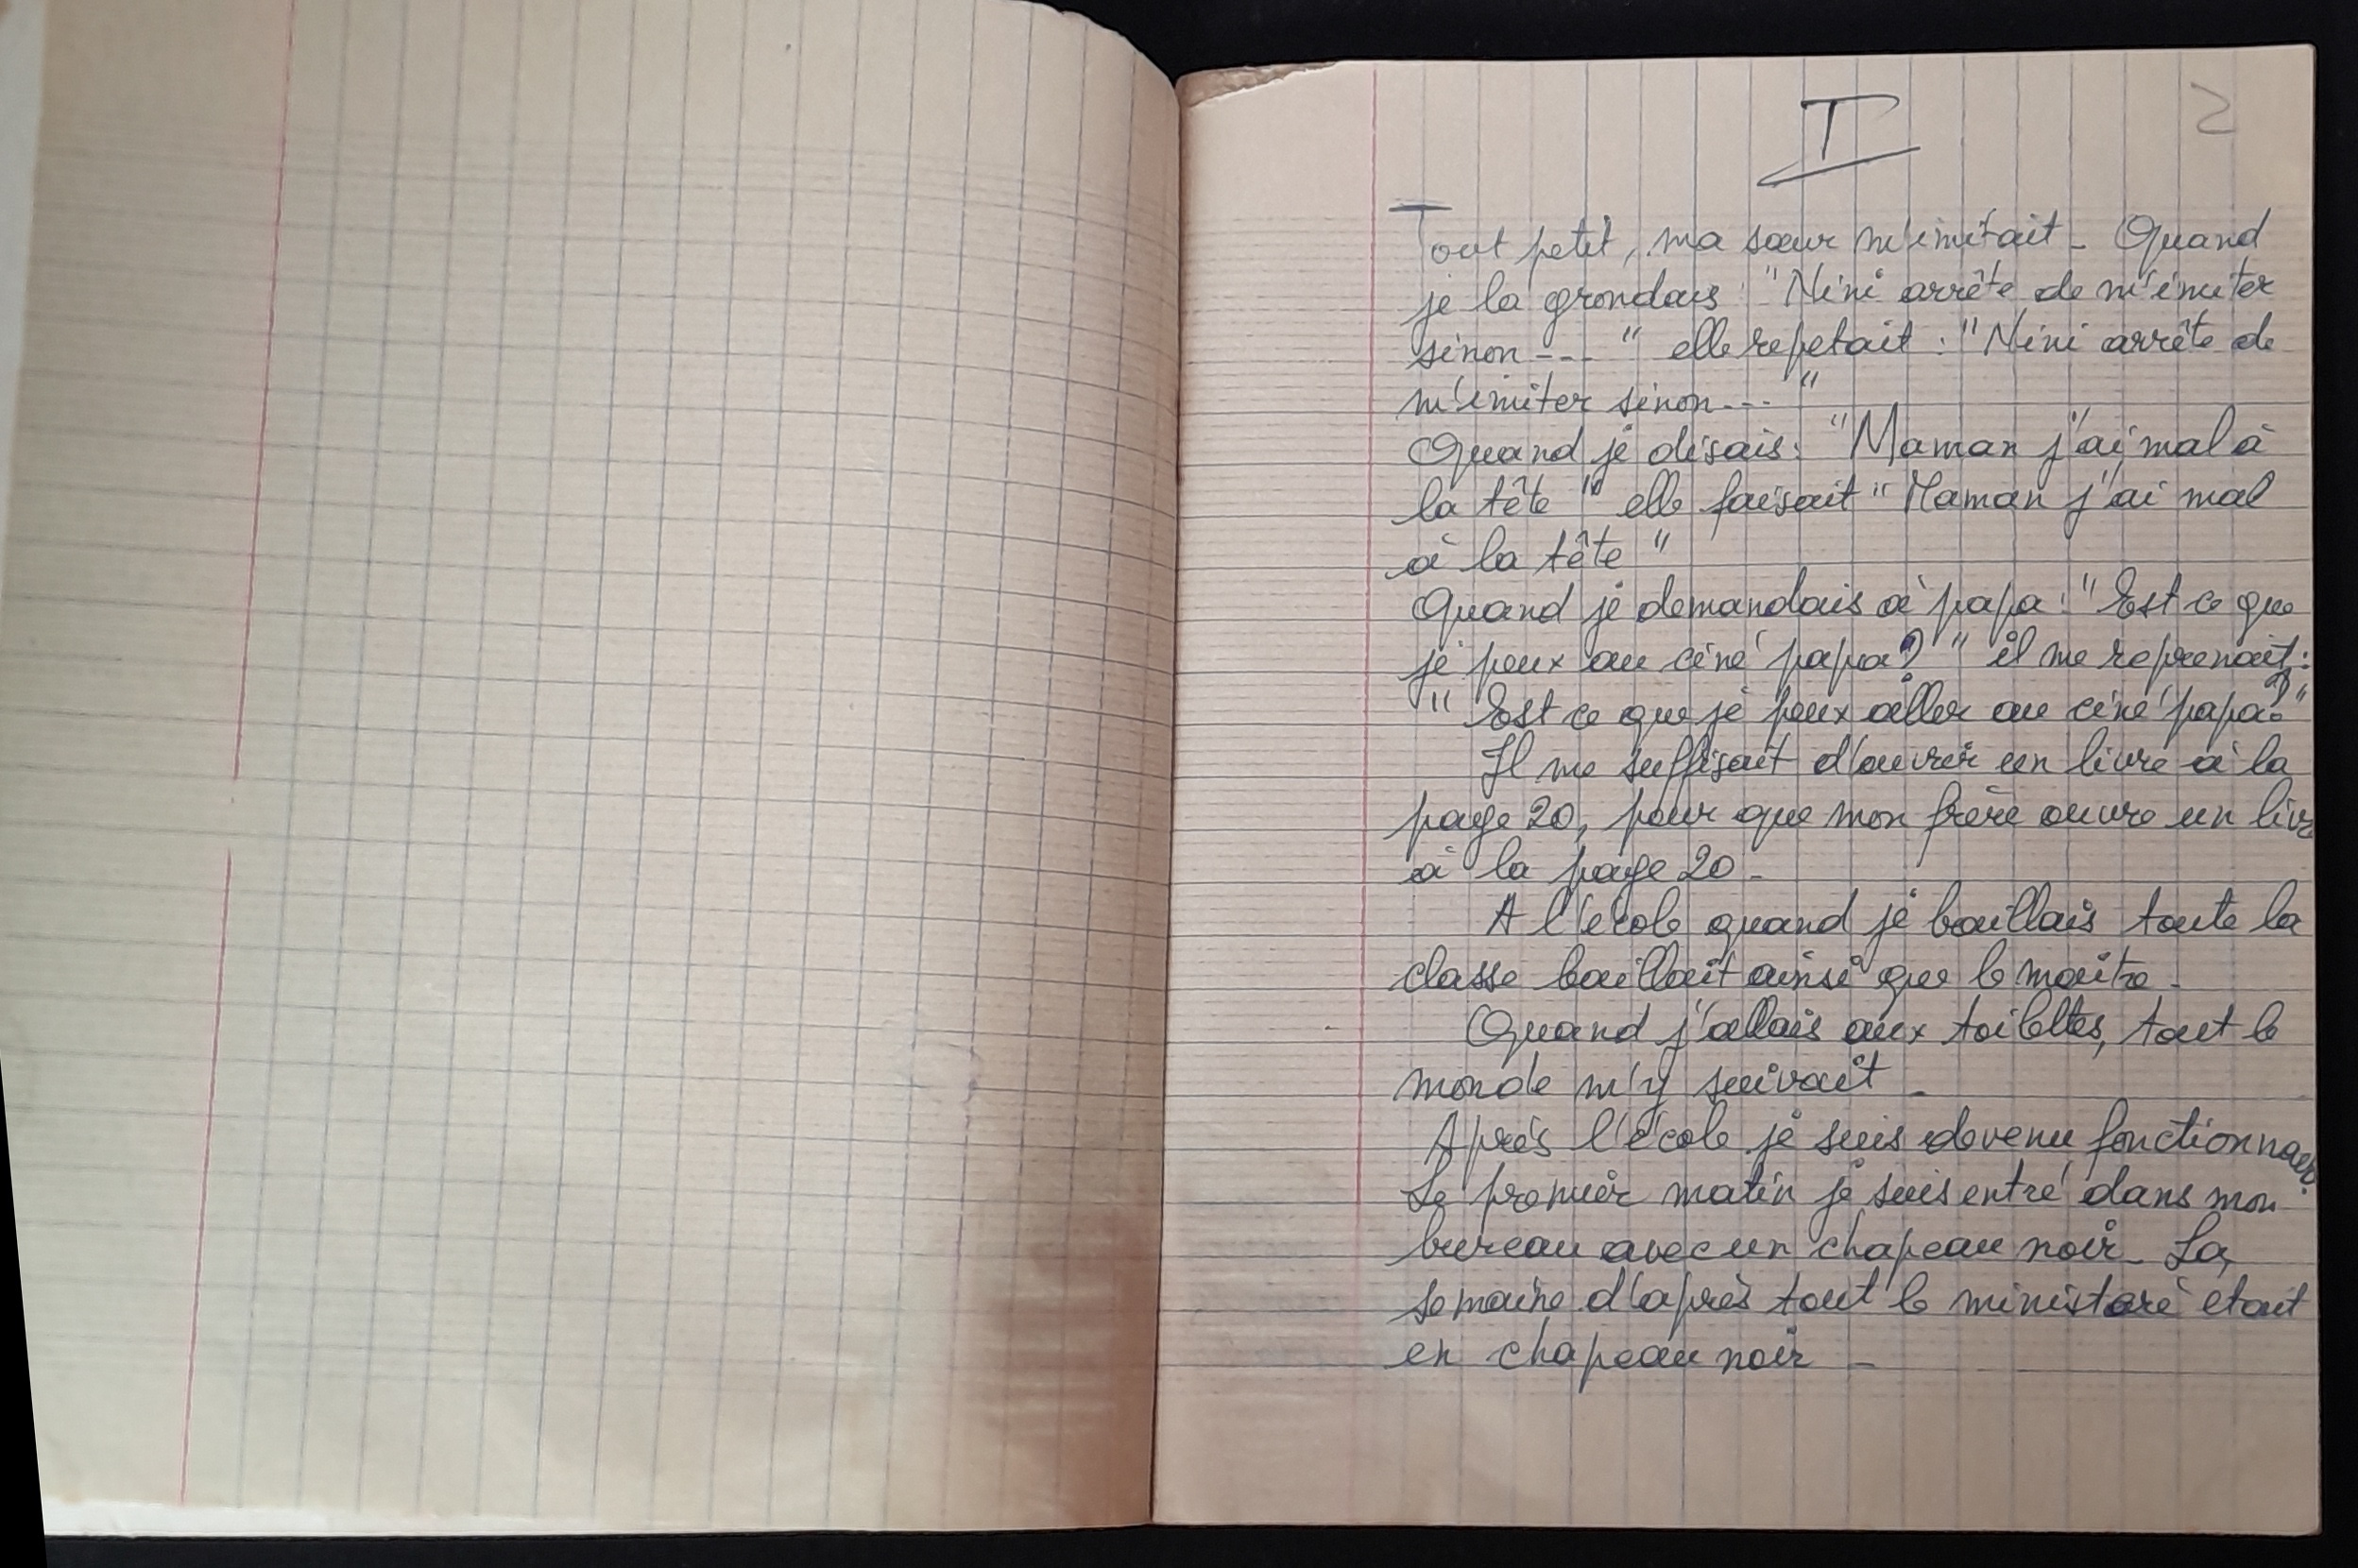 I
2
Tout petit, ma sœur m'imitait - Quand
je la grondais : "Nini arrête de m'imiter
sinon --- " elle repetait : "Nini arrête de
m'imiter sinon --- "
Quand je disais : "Maman j'ai mal à
la tête " elle faisait " Maman j'ai mal
à la tête "
Quand je demandais à papa : "Est ce que
je peux au ciné papa ? " il me reprenait :
" Est ce que je peux aller au ciné papa ? "
Il me suffisait d'ouvrir un livre à la
page 20, pour que mon frère ouvre un livre
à la page 20 -
A l'école quand je baillais toute la
classe baillait ainsi que le maitre -
Quand j'allais aux toilettes, tout le
monde m'y suivait -
Après l'école je suis devenu fonctionnaire.
Le premier matin je suis entré dans mon
bureau avec un chapeau noir - La
semaine d'après tout le ministère etait
en chapeau noir -